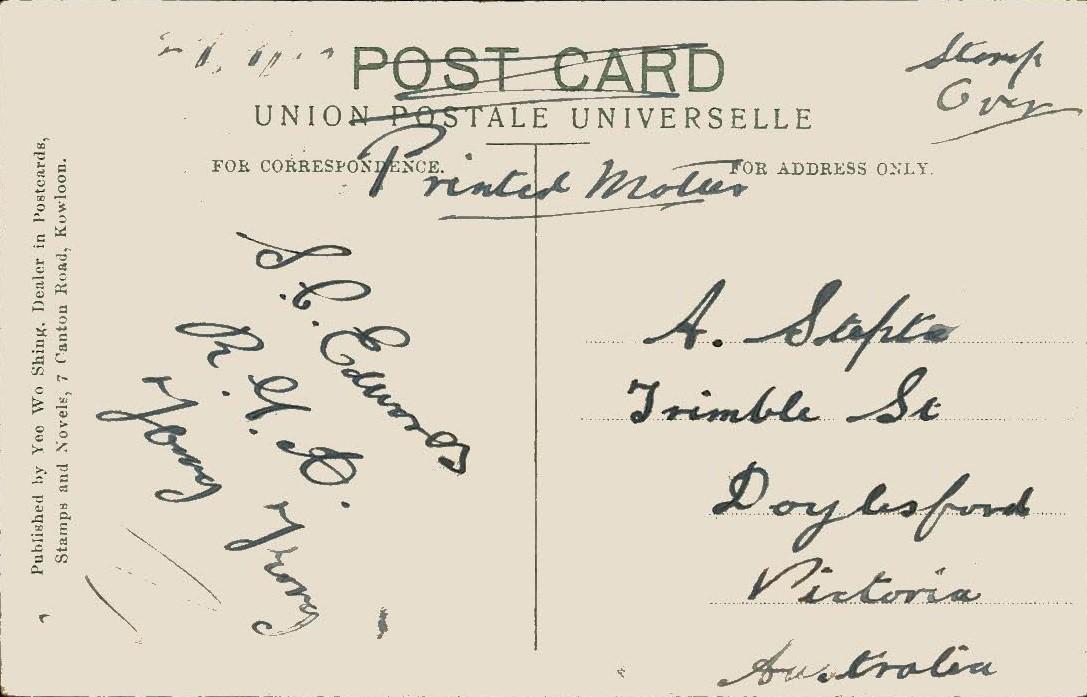 POST CARD
UNION POSTALE UNIVERSELLE
Stamp
Over
FOR CORRESPONDENCE.
FOR ADDRESS ONLY.
Printed Matter
S. C. Edwards
R. G. A.
Hong Kong
A. Stepto
Trimble St
Daylesford
Victoria
Australia
Published by Yee Wo Shing, Dealer in Postcards,
Stamps and Novels, 7 Canton Road, Kowloon.